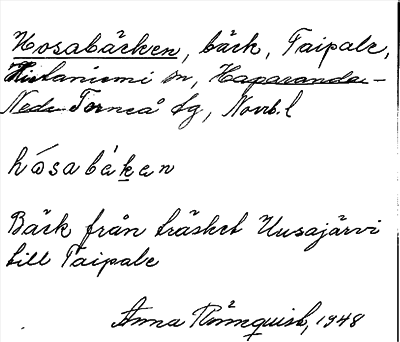 Hosabäcken, bäck, Taipale,
Hietaniemi sn, Haparanda-
Neder Torneå tg, Norrb. l
hósabäkan
Bäck från träsket Uusajärvi
till Taipale
Anna Rönnquist, 1948